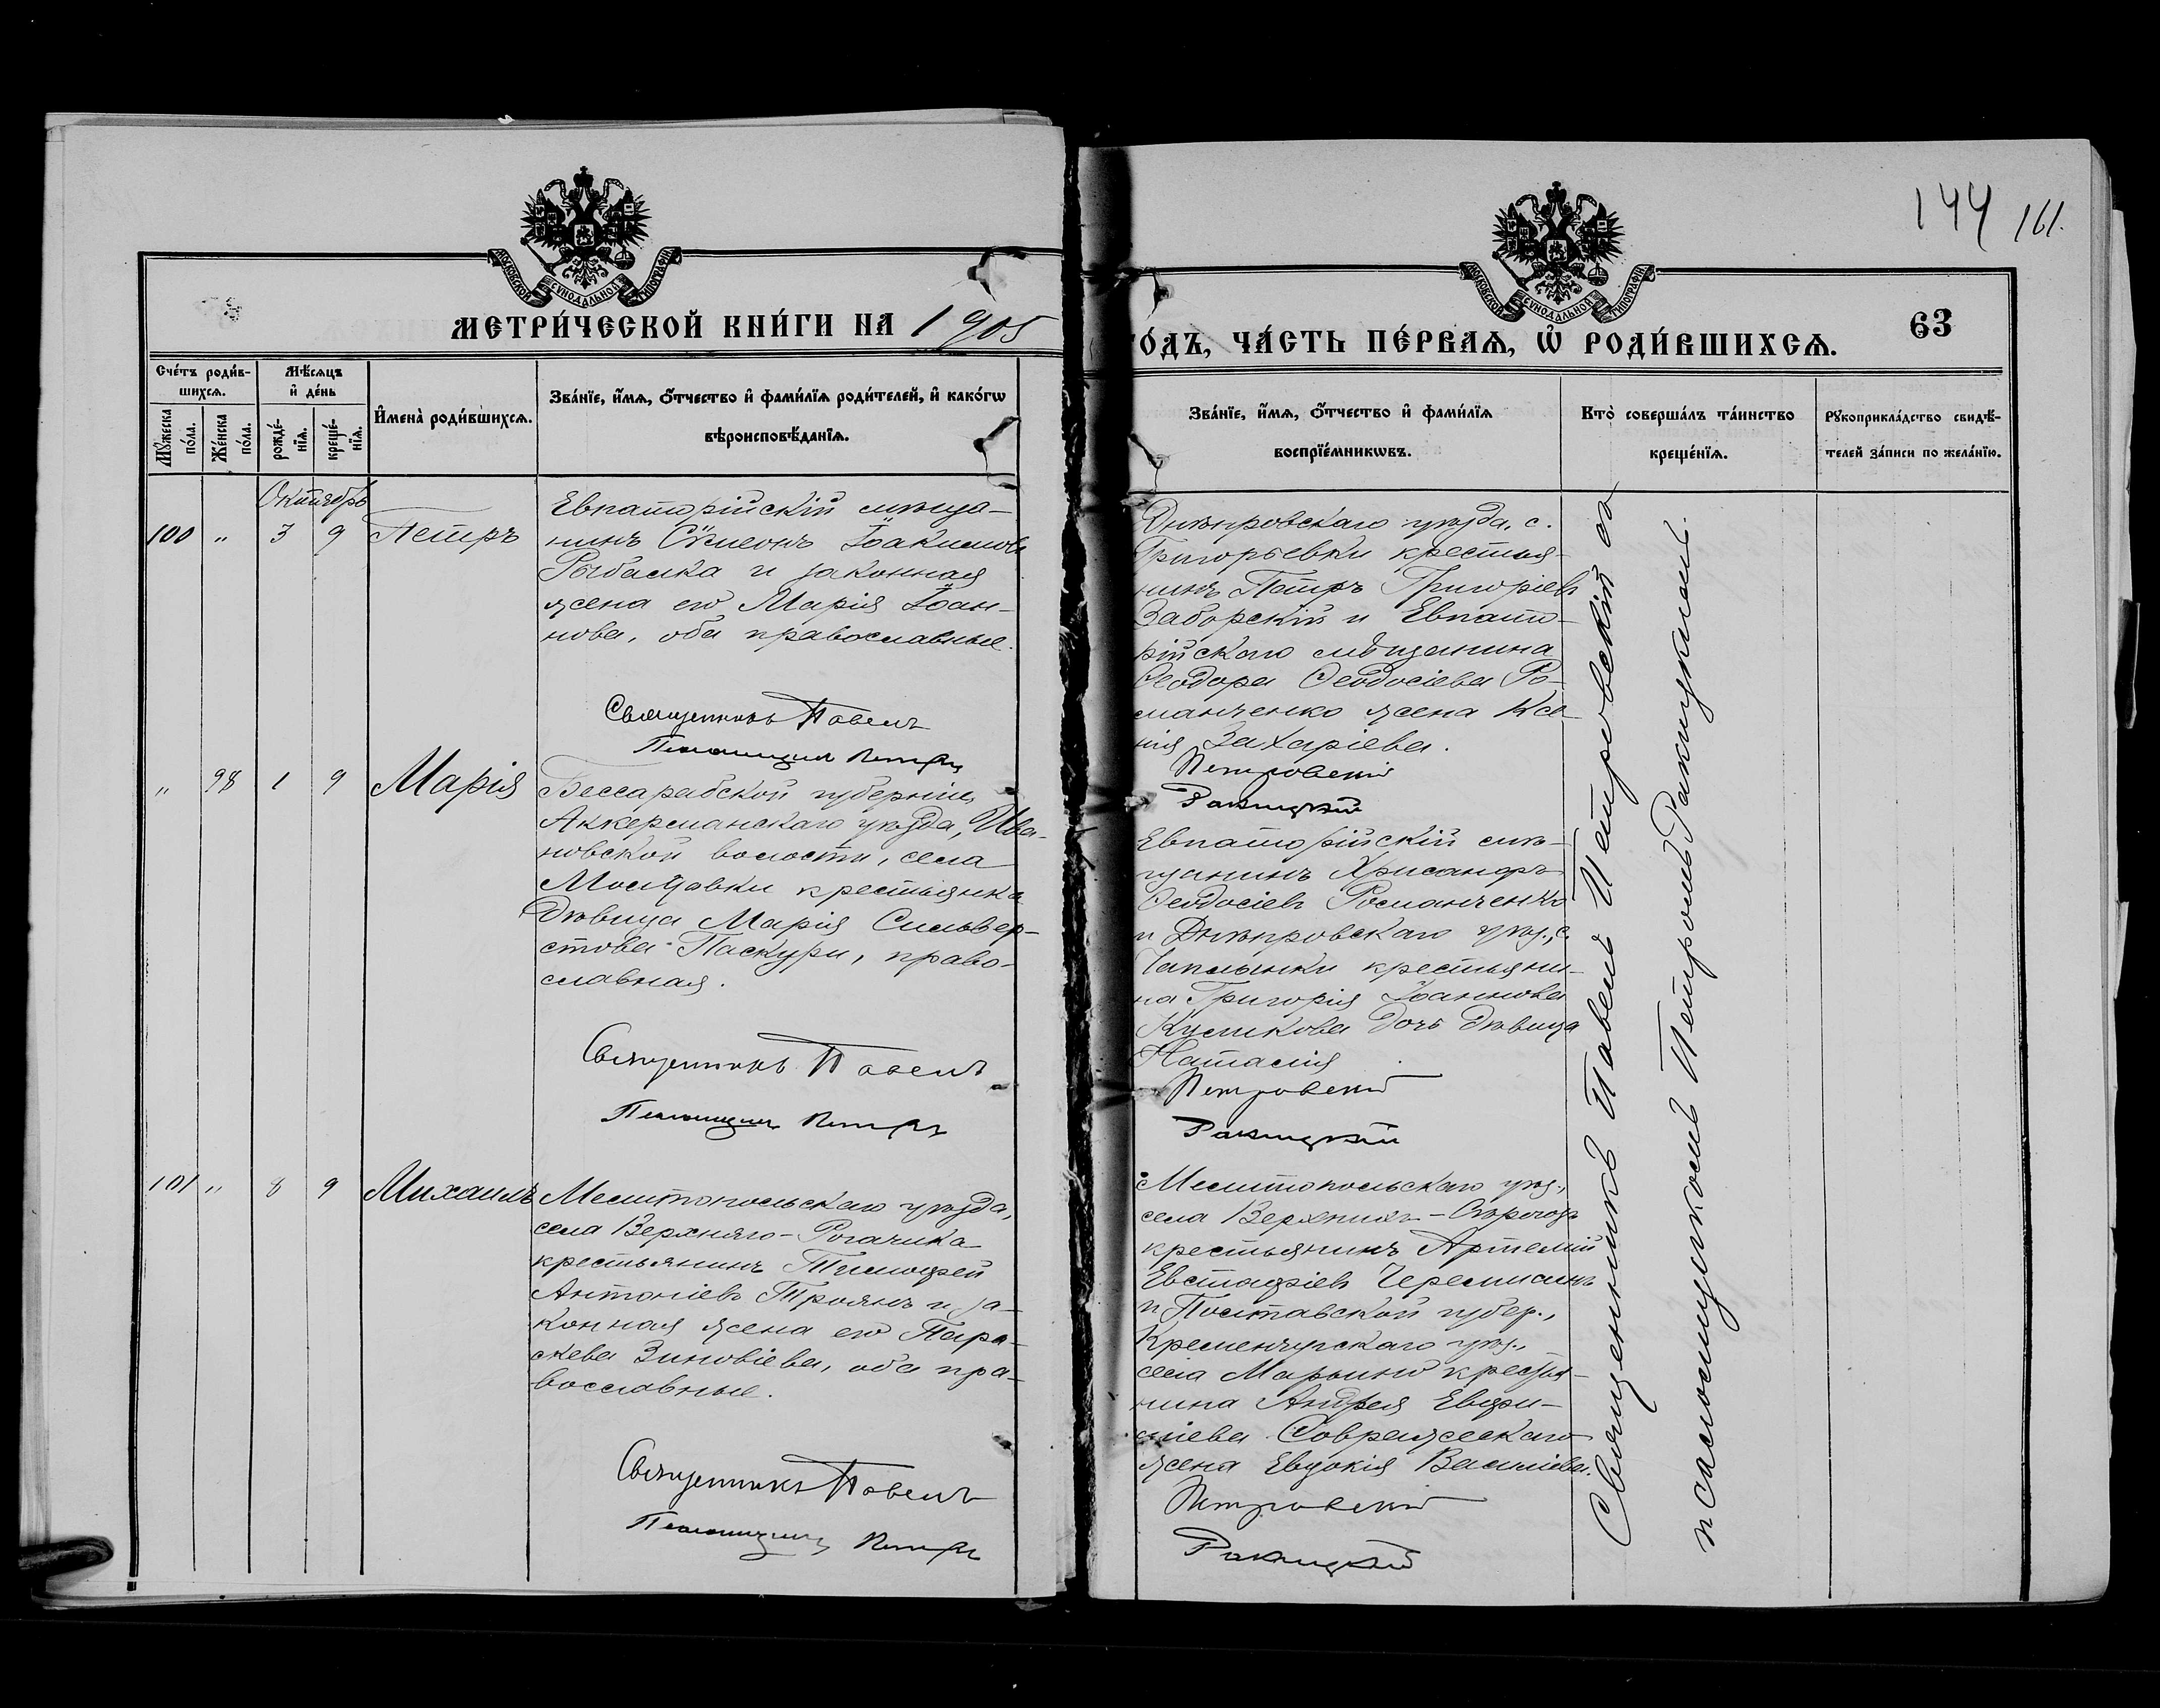 144 161.
МОСКОВСКОЙ СѴНОДАЛЬНОЙ ТИПОГРАФІИ
МОСКОВСКОЙ СѴНОДАЛЬНОЙ ТИПОГРАФІИ
МЕТРИ́ЧЕСКОЙ КНИ́ГИ НА 1905
ГО́ДЪ, ЧА́СТЬ ПЕ́РВАѦ, Ѿ РОДИ́ВШИХСѦ. 63
Сче́тъ роди́в-
шихсѧ.
Мꙋ́жеска по́ла.
Же́нска по́ла.
Мѣ́сѧцъ
и҆ де́нь
рожде́-нїѧ.
креще́-нїѧ.
И҆мена̀ роди́вшихсѧ.
Зва́нїе, и҆́мѧ, ѻ҆́тчество и҆ фами́лїѧ роди́телей, и҆ како́гѡ
вѣроисповѣ́данїѧ.
Зва́нїе, и҆́мѧ, ѻ҆́тчество и҆ фами́лїѧ
воспрїе́мникѡвъ.
Кто̀ соверша́лъ та́инство
креще́нїѧ.
Рꙋкоприкла́дство свидѣ́-
телей за́писи по жела́нїю.
Октябрь
100 „ 3 9 Петръ
Евпаторійскій мѣща-
нинъ Сѵмеонъ Іоакимовъ
Рыбалка и законная
жена его Марія Іоан-
нова, оба православные.
Священникъ Павелъ
Псаломщикъ Петръ
Днѣпровскаго уѣзда, с.
Григорьевки крестья-
нинъ Петръ Григоріевъ
Заборскій и Евпато-
рійскаго мѣщанина
Ѳеодора Ѳеодосіева Ро-
манченко жена Ксе-
нія Захаріева.
Петровскій
Ракицкій
„ 98 1 9 Марія
Бессарабской губерніи,
Аккерманскаго уѣзда, Ива-
новской волости, села
Молдавки крестьянка
дѣвица Марія Сильвер-
стова Паскури, право-
славная.
Священникъ Павелъ
Псаломщикъ Петръ
Евпаторійскій мѣ-
щанинъ Хрисанфъ
Ѳеодосіевъ Романченко
и Днѣпровскаго уѣз., с.
Чаплынки крестьяни-
на Григорія Іоаннова
Куликова дочь дѣвица
Наталія
Петровскій
Ракицкій
101 „ 8 9 Михаилъ
Мелитопольскаго уѣзда,
села Верхняго-Рогачика
крестьянинъ Тимофей
Антоніевъ Троянъ и за-
конная жена его Пара-
скева Зиновіева, оба пра-
вославные.
Священникъ Павелъ
Псаломщикъ Петръ
Мелитопольскаго уѣз.,
села Верхнихъ-Сѣрогозъ
крестьянинъ Артемій
Евстафіевъ
и Полтавской губер.,
Кременчугскаго уѣз.,
села Марьино крестья-
нина Андрея Евфи-
міева
жена Евдокія Василіева.
Петровскій
Ракицкій
Священникъ Павелъ Петровскій съ
псаломщикомъ Петромъ Ракицкимъ.